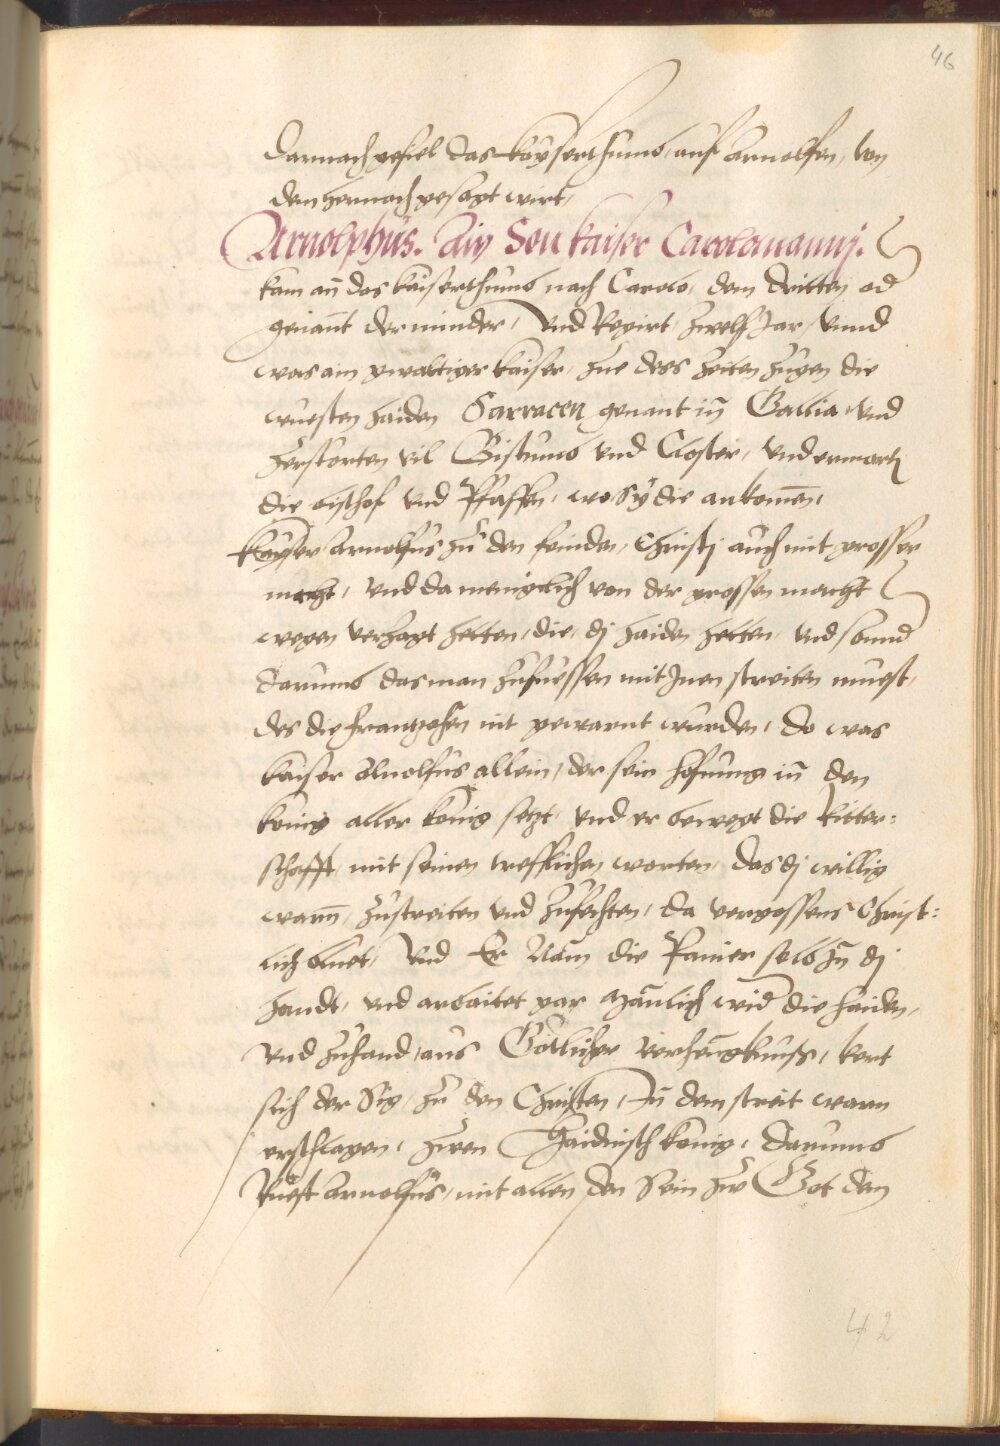 46
darnach gefiel das kayserthumb, auf Arnolfen, von
dem hernach gesagt wirt,
Arnolphus. Ain Son kaiser Carolomannj.
kam an̄ das kaiserthumb nach Carolo, dem dritten od
genant der minder, Vnd Regirt, zwelf Jar, Vnnd
was ain gwaltiger kaiser, zue des Zeiten zugen die
wuesten haiden Sarracen genant in̄ Gallia, vnd
zerstorten vil Bistumb vnd Closter, vnd ermortē
die bischof vnd Pfaffen, wo Sÿ die ankomen,
Kayser Arnolfus zů den feinden, Christj auch mit grosser
macht, vnd da meniglich von der grossen macht
wegen verzagt hetten, die, dj haiden hetten, vnd sonnd
darumb das man zufuessen mit Inen streiten muest,
des die frantzosen nit gewarnt wurden, do was
kaiser Arnolfus allein, der sein hofnung in̄ den
konig aller konig setzt, vnd er bewegt die Ritter=
schafft, mit seinen trefflichen worten, das dj willig
warn̄, zustreiten vnd zufechten, da vergossens Christ=
lich bluet, Vnd Er Nam die Panier selb In dj
handt, vnd arbaitet gar manlich wid die haiden,
vnd zuhand, aus Gotlicher verhengknuss, kert
sich der Sig, zu den Christen, In dem streit warn
erschlagen, zwen Haidnisch konig, darumb
Rueft Arnolfus, mit allen den Sein zw Got dem
42